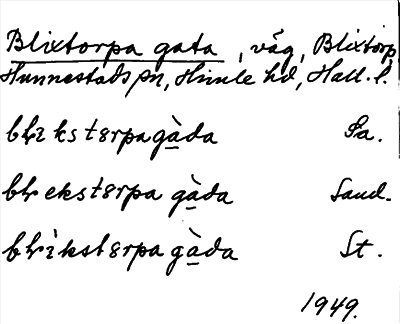 Blixtorpa gata, väg, Blixtorp,
Hunnestads sn, Himle hd, Hall. l.
bḷı kstɛrpagàda Pa.
bḷekstɛrpa gàda Sand.
bḷìkstɛrpa gàda St.
1949.